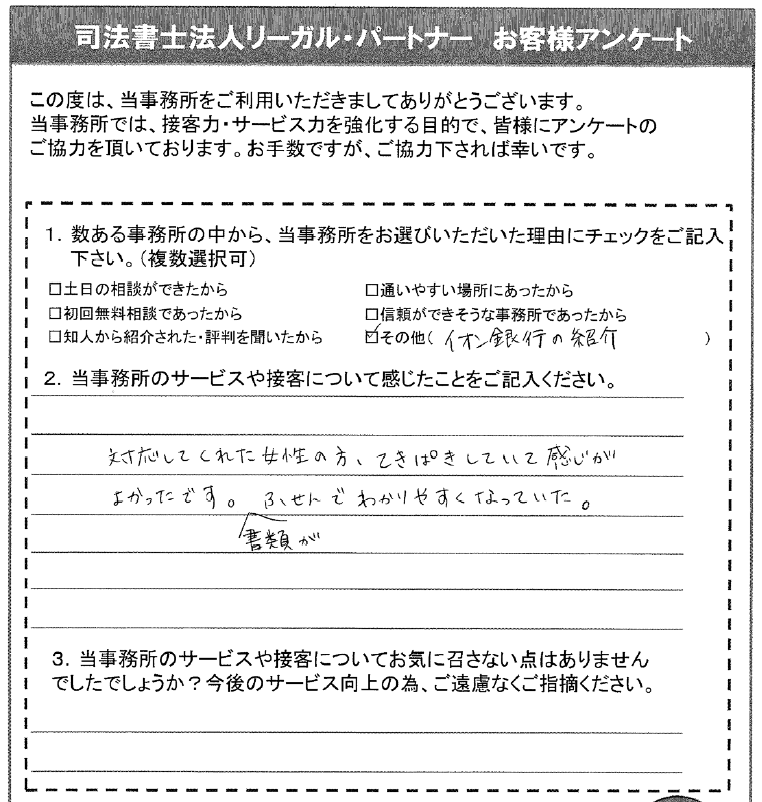 司法書士法人リーガル・パートナー お客様アンケート
この度は、当事務所をご利用いただきましてありがとうございます。
当事務所では、接客力・サービス力を強化する目的で、皆様にアンケートの
ご協力を頂いております。お手数ですが、ご協力下されば幸いです。
1. 数ある事務所の中から、当事務所をお選びいただいた理由にチェックをご記入
下さい。(複数選択可)
□土日の相談ができたから □通いやすい場所にあったから
□初回無料相談であったから □信頼ができそうな事務所であったから
□知人から紹介された・評判を聞いたから ☑その他( イオン銀行の紹介 )
2. 当事務所のサービスや接客について感じたことをご記入ください。
対応してくれた女性の方、てきぱきしていて感じが
よかったです。ふせんでわかりやすくなっていた。
書類が
3. 当事務所のサービスや接客についてお気に召さない点はありません
でしたでしょうか?今後のサービス向上の為、ご遠慮なくご指摘ください。